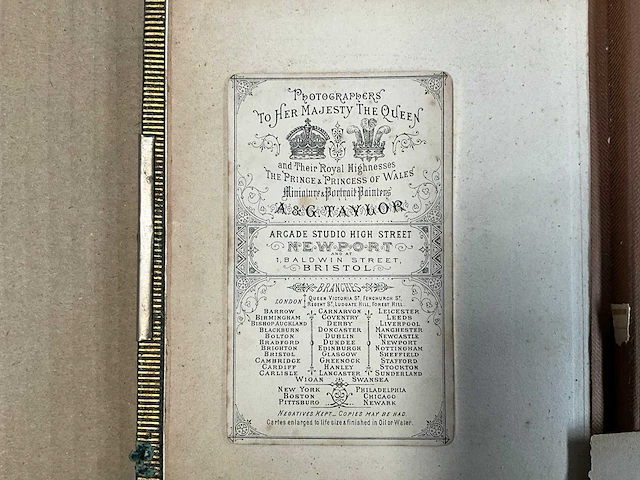 PHOTOGRAPHERS
TO HER MAJESTY THE QUEEN
and Their Royal Highnesses
THE PRINCE & PRINCESS OF WALES
Miniature & Portrait Painters
A & G. TAYLOR
ARCADE STUDIO HIGH STREET
NEWPORT
AND AT
1, BALDWIN STREET,
BRISTOL
BRANCHES
LONDON QUEEN VICTORIA ST, FENCHURCH ST,
REGENT ST, LUDGATE HILL, FOREST HILL.
BARROW CARNARVON LEICESTER
BIRMINGHAM COVENTRY LEEDS
BISHOP AUCKLAND DERBY LIVERPOOL
BLACKBURN DONCASTER MANCHESTER
BOLTON DUBLIN NEWCASTLE
BRADFORD DUNDEE NEWPORT
BRIGHTON EDINBURGH NOTTINGHAM
BRISTOL GLASGOW SHEFFIELD
CAMBRIDGE GREENOCK STAFFORD
CARDIFF HANLEY STOCKTON
CARLISLE LANCASTER SUNDERLAND
WIGAN SWANSEA
NEW YORK PHILADELPHIA
BOSTON CHICAGO
PITTSBURG NEWARK
NEGATIVES KEPT_ COPIES MAY BE HAD.
Cartes enlarged to life size & finished in Oil or Water.